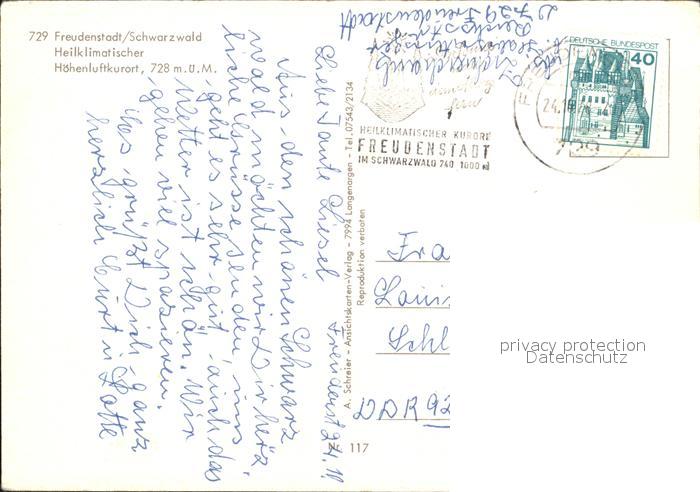 729 Freudenstadt/Schwarzwald
Heilklimatischer
Höhenluftkurort, 728 m.ü.M.
Liebe Tante Liesel
Freudenst 24. 10
Aus den schönen Schwarz
wald möchten wir Dir herz
liche Grüsse senden, uns
geht es sehr gut, auch das
Wetter ist schön. Wir
gehen viel spazieren.
Es grüßt Dich ganz
herzlich Curt u Lotte
A. Schreier - Ansichtskarten-Verlag - 7994 Langenargen - Tel. 07543/2134
Reproduktion verboten
Nr. 117
729 Freudenstadt
HEILKLIMATISCHER KURORT
FREUDENSTADT
IM SCHWARZWALD 740-1000 m
24.10
729
DEUTSCHE BUNDESPOST
40
Fra
Loui
Schl
DDR 92
privacy protection
Datenschutz